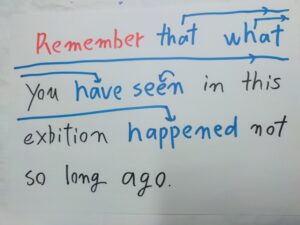 Remember that what
you have seen in this
exbition happened not
so long ago.